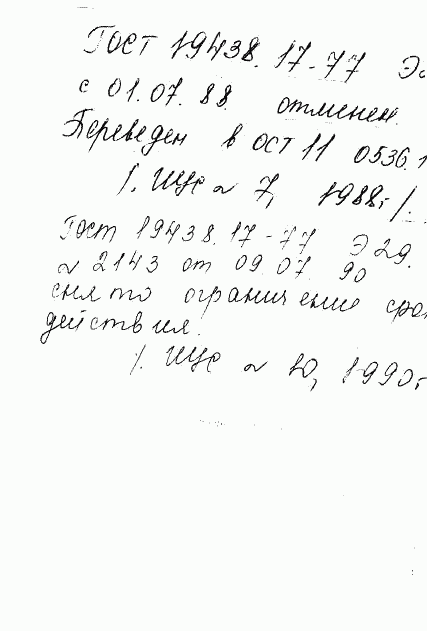 Гост 19438.17-77 Э
с 01.07.88 отменен.
Переведен в ост 11 0536.
/. ИУС № 7, 1988г/.
Гост 19438.17-77 Э29.
№ 2143 от 09.07.90
снято ограничение
действия.
/. ИУС № 10, 1990г